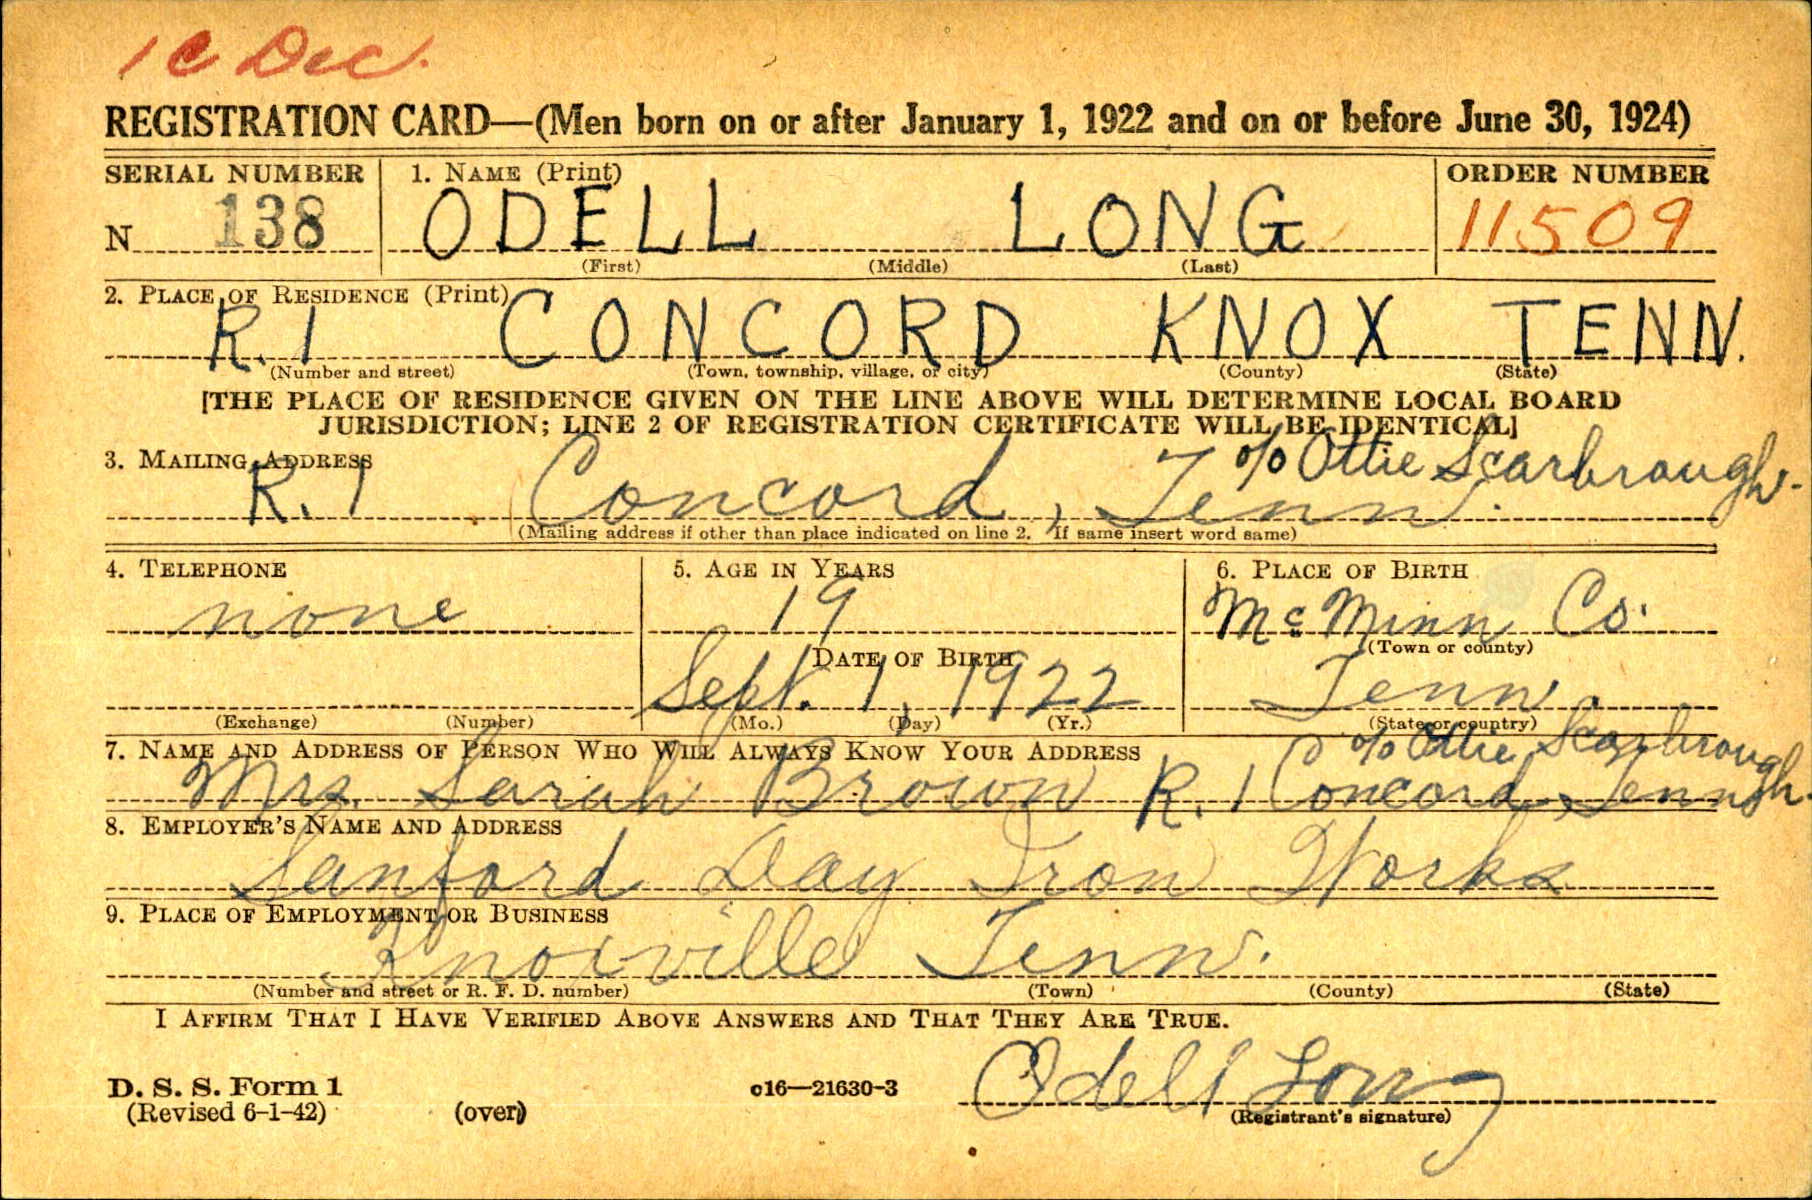 1C Dec.
REGISTRATION CARD—(Men born on or after January 1, 1922 and on or before June 30, 1924)
SERIAL NUMBER 1. NAME (Print) ORDER NUMBER
N 138 ODELL LONG 11509
(First) (Middle) (Last)
2. PLACE OF RESIDENCE (Print)
R. 1 CONCORD KNOX TENN.
(Number and street) (Town, township, village, or city) (County) (State)
[THE PLACE OF RESIDENCE GIVEN ON THE LINE ABOVE WILL DETERMINE LOCAL BOARD
JURISDICTION; LINE 2 OF REGISTRATION CERTIFICATE WILL BE IDENTICAL]
3. MAILING ADDRESS % Ottie Scarbrough.
R. 1 Concord, Tenn.
(Mailing address if other than place indicated on line 2. If same insert word same)
4. TELEPHONE 5. AGE IN YEARS 6. PLACE OF BIRTH
none 19 McMinn Co.
DATE OF BIRTH (Town or county)
Sept. 1, 1922 Tenn.
(Exchange) (Number) (Mo.) (Day) (Yr.) (State or country)
7. NAME AND ADDRESS OF PERSON WHO WILL ALWAYS KNOW YOUR ADDRESS % Ottie Scarbrough.
Mrs. Sarah Brown R. 1 Concord, Tenn
8. EMPLOYER'S NAME AND ADDRESS
Sanford Day Iron Works
9. PLACE OF EMPLOYMENT OR BUSINESS
Knoxville Tenn.
(Number and street or R. F. D. number) (Town) (County) (State)
I AFFIRM THAT I HAVE VERIFIED ABOVE ANSWERS AND THAT THEY ARE TRUE.
D. S. S. Form 1 c16—21630-3 Odell Long
(Revised 6-1-42) (over) (Registrant's signature)